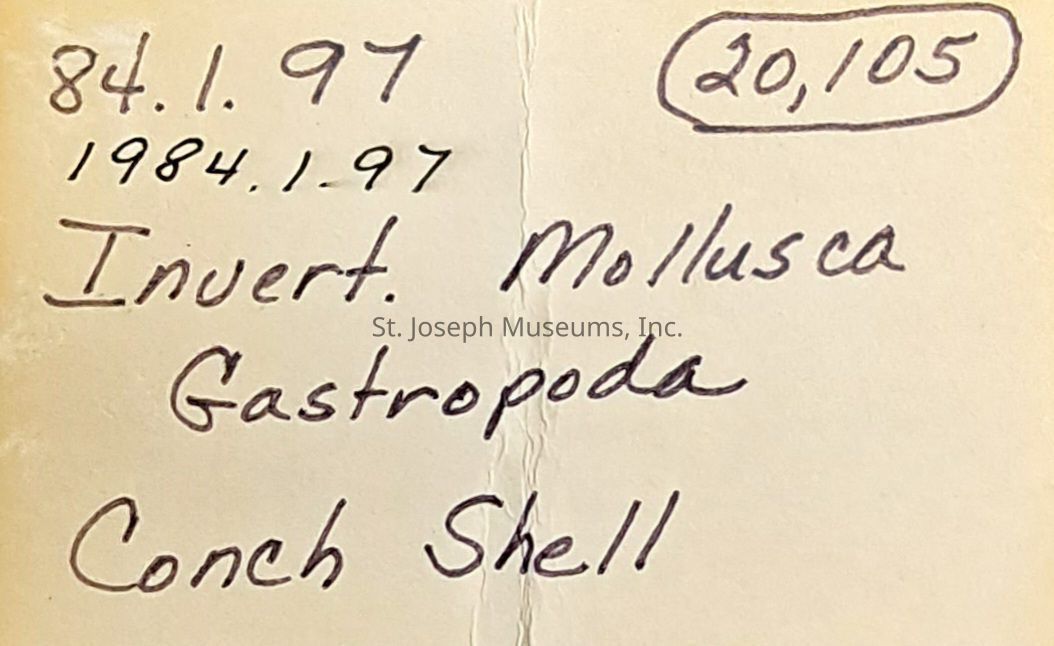 84.1.97 20,105
1984.1.97
Invert. Mollusca
St. Joseph Museums, Inc.
Gastropoda
Conch Shell